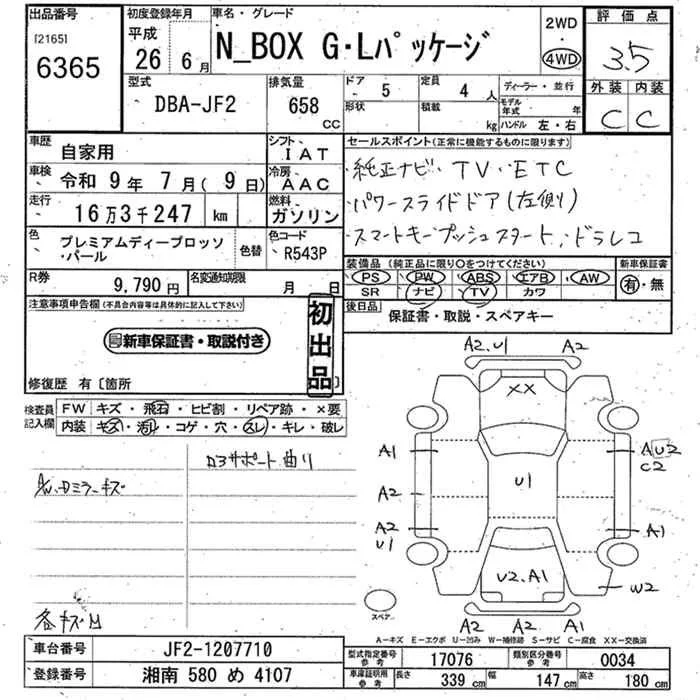 出品番号
[2165]
6365
初度登録年月
平成
26 6月
車名・グレード
N_BOX G・Lパッケージ
2WD
・
4WD
評価点
3.5
外装 内装
C C
型式
DBA-JF2
排気量
658
CC
ドア 5
形状
定員 4 人
積載 kg
ディーラー・並行
モデル年式 年
ハンドル 左・右
車歴 自家用
車検 令和 9年 7月( 9日)
走行 16万3千247 km
シフト IAT
冷房 AAC
燃料 ガソリン
色 プレミアムディープロッソ
・パール
色替
色コード R543P
R券 9,790円
名変通知期限 月 日
セールスポイント(正常に機能するものに限ります)
・純正ナビ・TV・ETC
・パワースライドドア(左側)
・スマートキープッシュスタート・ドラレコ
装備品 (純正品に限り○をつけてください)
PS PW ABS エアB AW
SR ナビ TV カワ
新車保証書
有・無
後日品 保証書・取説・スペアキー
注意事項申告欄(不具合内容等は具体的に記入して下さい)
新車保証書・取説付き
初出品
修復歴 有〔箇所
検査員
記入欄
FW キズ・飛石・ヒビ割・リペア跡・×要
内装 キズ・汚れ・コゲ・穴・スレ・キレ・破レ
コアサポート曲り
A/W、Dミラーキズ
各キズ凹
A2、U1 A2
XX
A1
A2
A2
U1
U1
AU2
C2
A1
W2
U2、A1
A2 A2 A1
スペアー
A-キズ E-エクボ U-凹み W-補修跡 S-サビ C-腐食 XX-交換済
車台番号 JF2-1207710
登録番号 湘南 580 め 4107
型式指定番号
参考 17076
類別区分番号
参考 0034
車庫証明用
参考 長さ 339 cm 幅 147 cm 高さ 180 cm